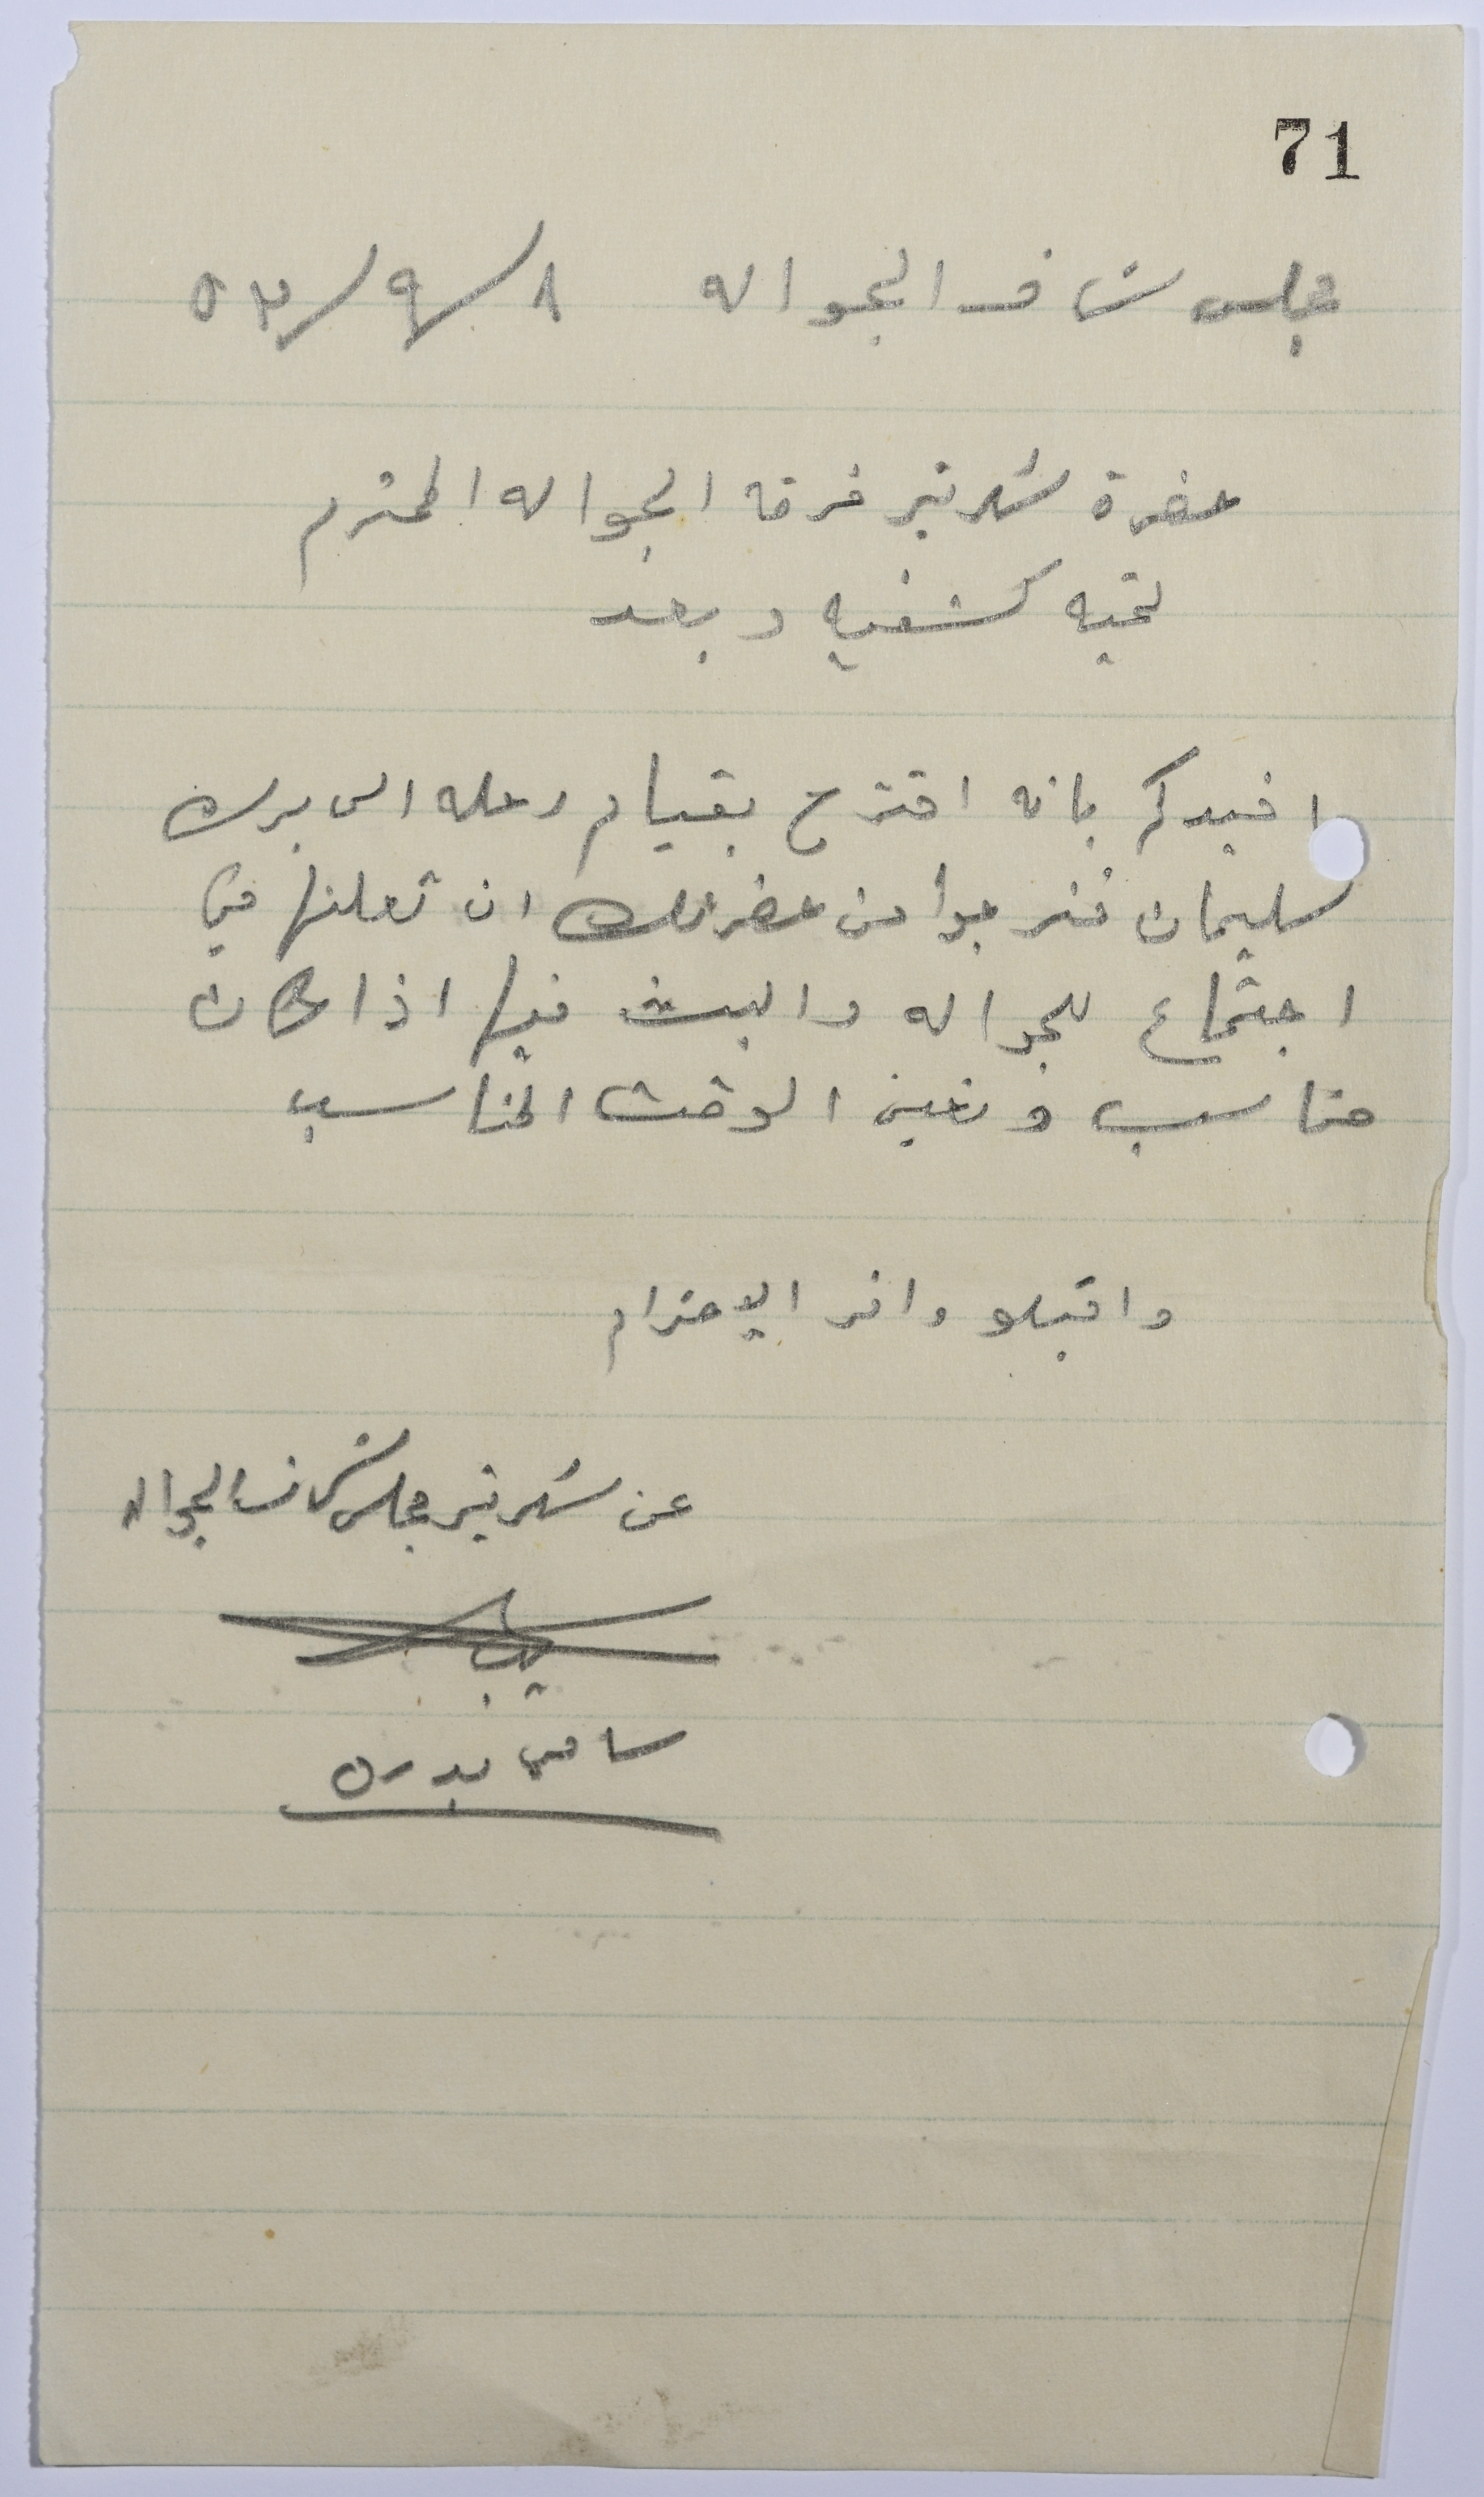 71
مجلس شرف الجواله ٨/٩/٥٣
حضرة سكرتير فرقة الجواله المحترم
تحيه كشفيه وبعد
افيدكم بانه اقترح بقيام رحله الى برك
سليمان فنرجوا من حضرتك ان تعلنها في
اجتماع للجواله والبث فيها اذا كان
مناسب وتعين الوقت المناسب
واقبلو وافر الاحترام
عن سكرتير مجلس شرف الجواله
سامي